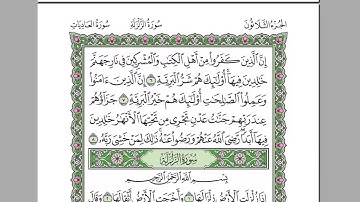 سُورَةُ العَادِيَات سُورَةُ الزَّلْزَلَة الجُزْءُ الثَّلَاثُونَ
إِنَّ الَّذِينَ كَفَرُوا مِنْ أَهْلِ الْكِتَابِ وَالْمُشْرِكِينَ فِي نَارِ جَهَنَّمَ
خَالِدِينَ فِيهَا أُولَٰئِكَ هُمْ شَرُّ الْبَرِيَّةِ ٦ إِنَّ الَّذِينَ ءَامَنُوا
وَعَمِلُوا الصَّالِحَاتِ أُولَٰئِكَ هُمْ خَيْرُ الْبَرِيَّةِ ٧ جَزَاؤُهُمْ
عِندَ رَبِّهِمْ جَنَّاتُ عَدْنٍ تَجْرِي مِن تَحْتِهَا الْأَنْهَارُ خَالِدِينَ
فِيهَا أَبَدًا رَّضِيَ اللَّهُ عَنْهُمْ وَرَضُوا عَنْهُ ذَٰلِكَ لِمَنْ خَشِيَ رَبَّهُ ٨
سُورَةُ الزَّلْزَلَة
بِسْمِ اللَّهِ الرَّحْمَٰنِ الرَّحِيمِ
إِذَا زُلْزِلَتِ الْأَرْضُ زِلْزَالَهَا ١ وَأَخْرَجَتِ الْأَرْضُ أَثْقَالَهَا ٢ وَقَالَ